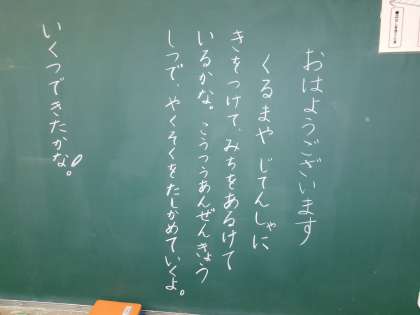 おはようございます
くるまや じてんしゃに
きをつけて、みちをあるけて
いるかな。こうつうあんぜんきょう
しつで、やくそくをたしかめていくよ。
いくつできたかな。